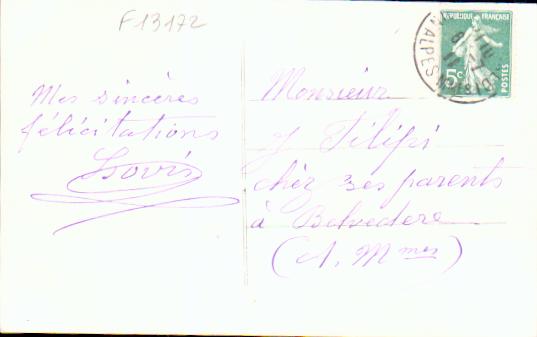 F 13172
Mes sincères
félicitations
Monsieur
J Filipi
chez ses parents
à Belvédère
(A. Mmes)
RÉPUBLIQUE FRANÇAISE
5c
POSTES
ALPES MMES